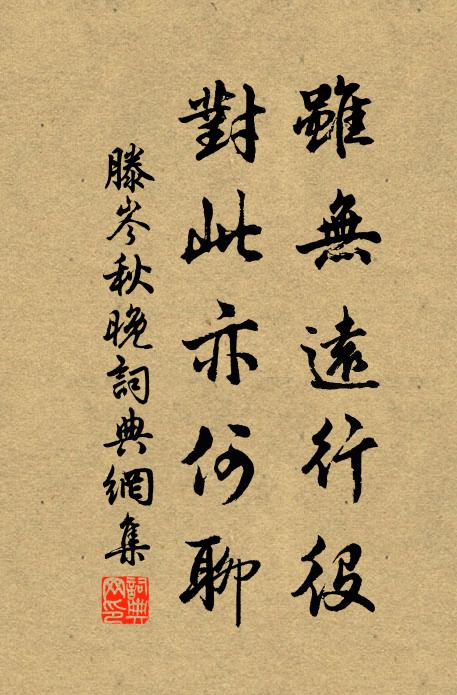 雖無遠行役
對此亦何聊
滕岑秋晚詞典網集
詞典網印